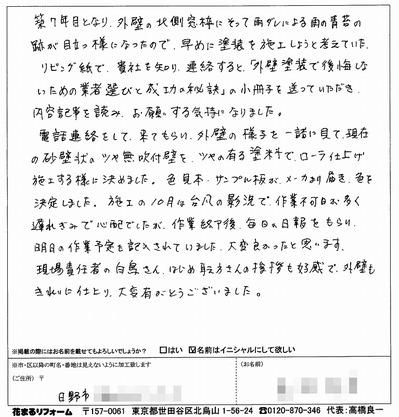 築7年目となり、外壁の北側窓枠にそって雨ダレによる雨の青苔の
跡が目立つ様になったので、早めに塗装を施工しようと考えていた。
リビング紙で、貴社を知り、連絡すると、「外壁塗装で後悔しな
いための業者選びと成功の秘訣」の小冊子を送っていただき、
内容記事を読み、お願いする気持になりました。
電話連絡をして、来てもらい、外壁の様子を一緒に見て、現在
の砂壁状のツヤ無吹付壁を、ツヤの有る塗料で、ローラ仕上げ
施工する様に決めました。色見本・サンプル板が、メーカより届き、色を
決定しました。施工の10月は台風の影況で、作業不可日が多く
遅れぎみで心配でしたが、作業終了後、毎日の日報をもらい、
明日の作業予定も記入されていました。大変良かったと思います。
現場責任者の白鳥さん、はじめ職方さんの挨拶も好感で、外壁も
きれいに仕上り、大変有がとうございました。
※掲載の際にはお名前を載せてもよろしいでしょうか？ □はい ☑名前はイニシャルにして欲しい
※市・区以降の町名・番地は見えないように加工致します
(ご住所) 〒
(お名前)
日野市
花まるリフォーム 〒157-0061 東京都世田谷区北烏山1-56-24 ☎0120-870-346 代表:高橋良一